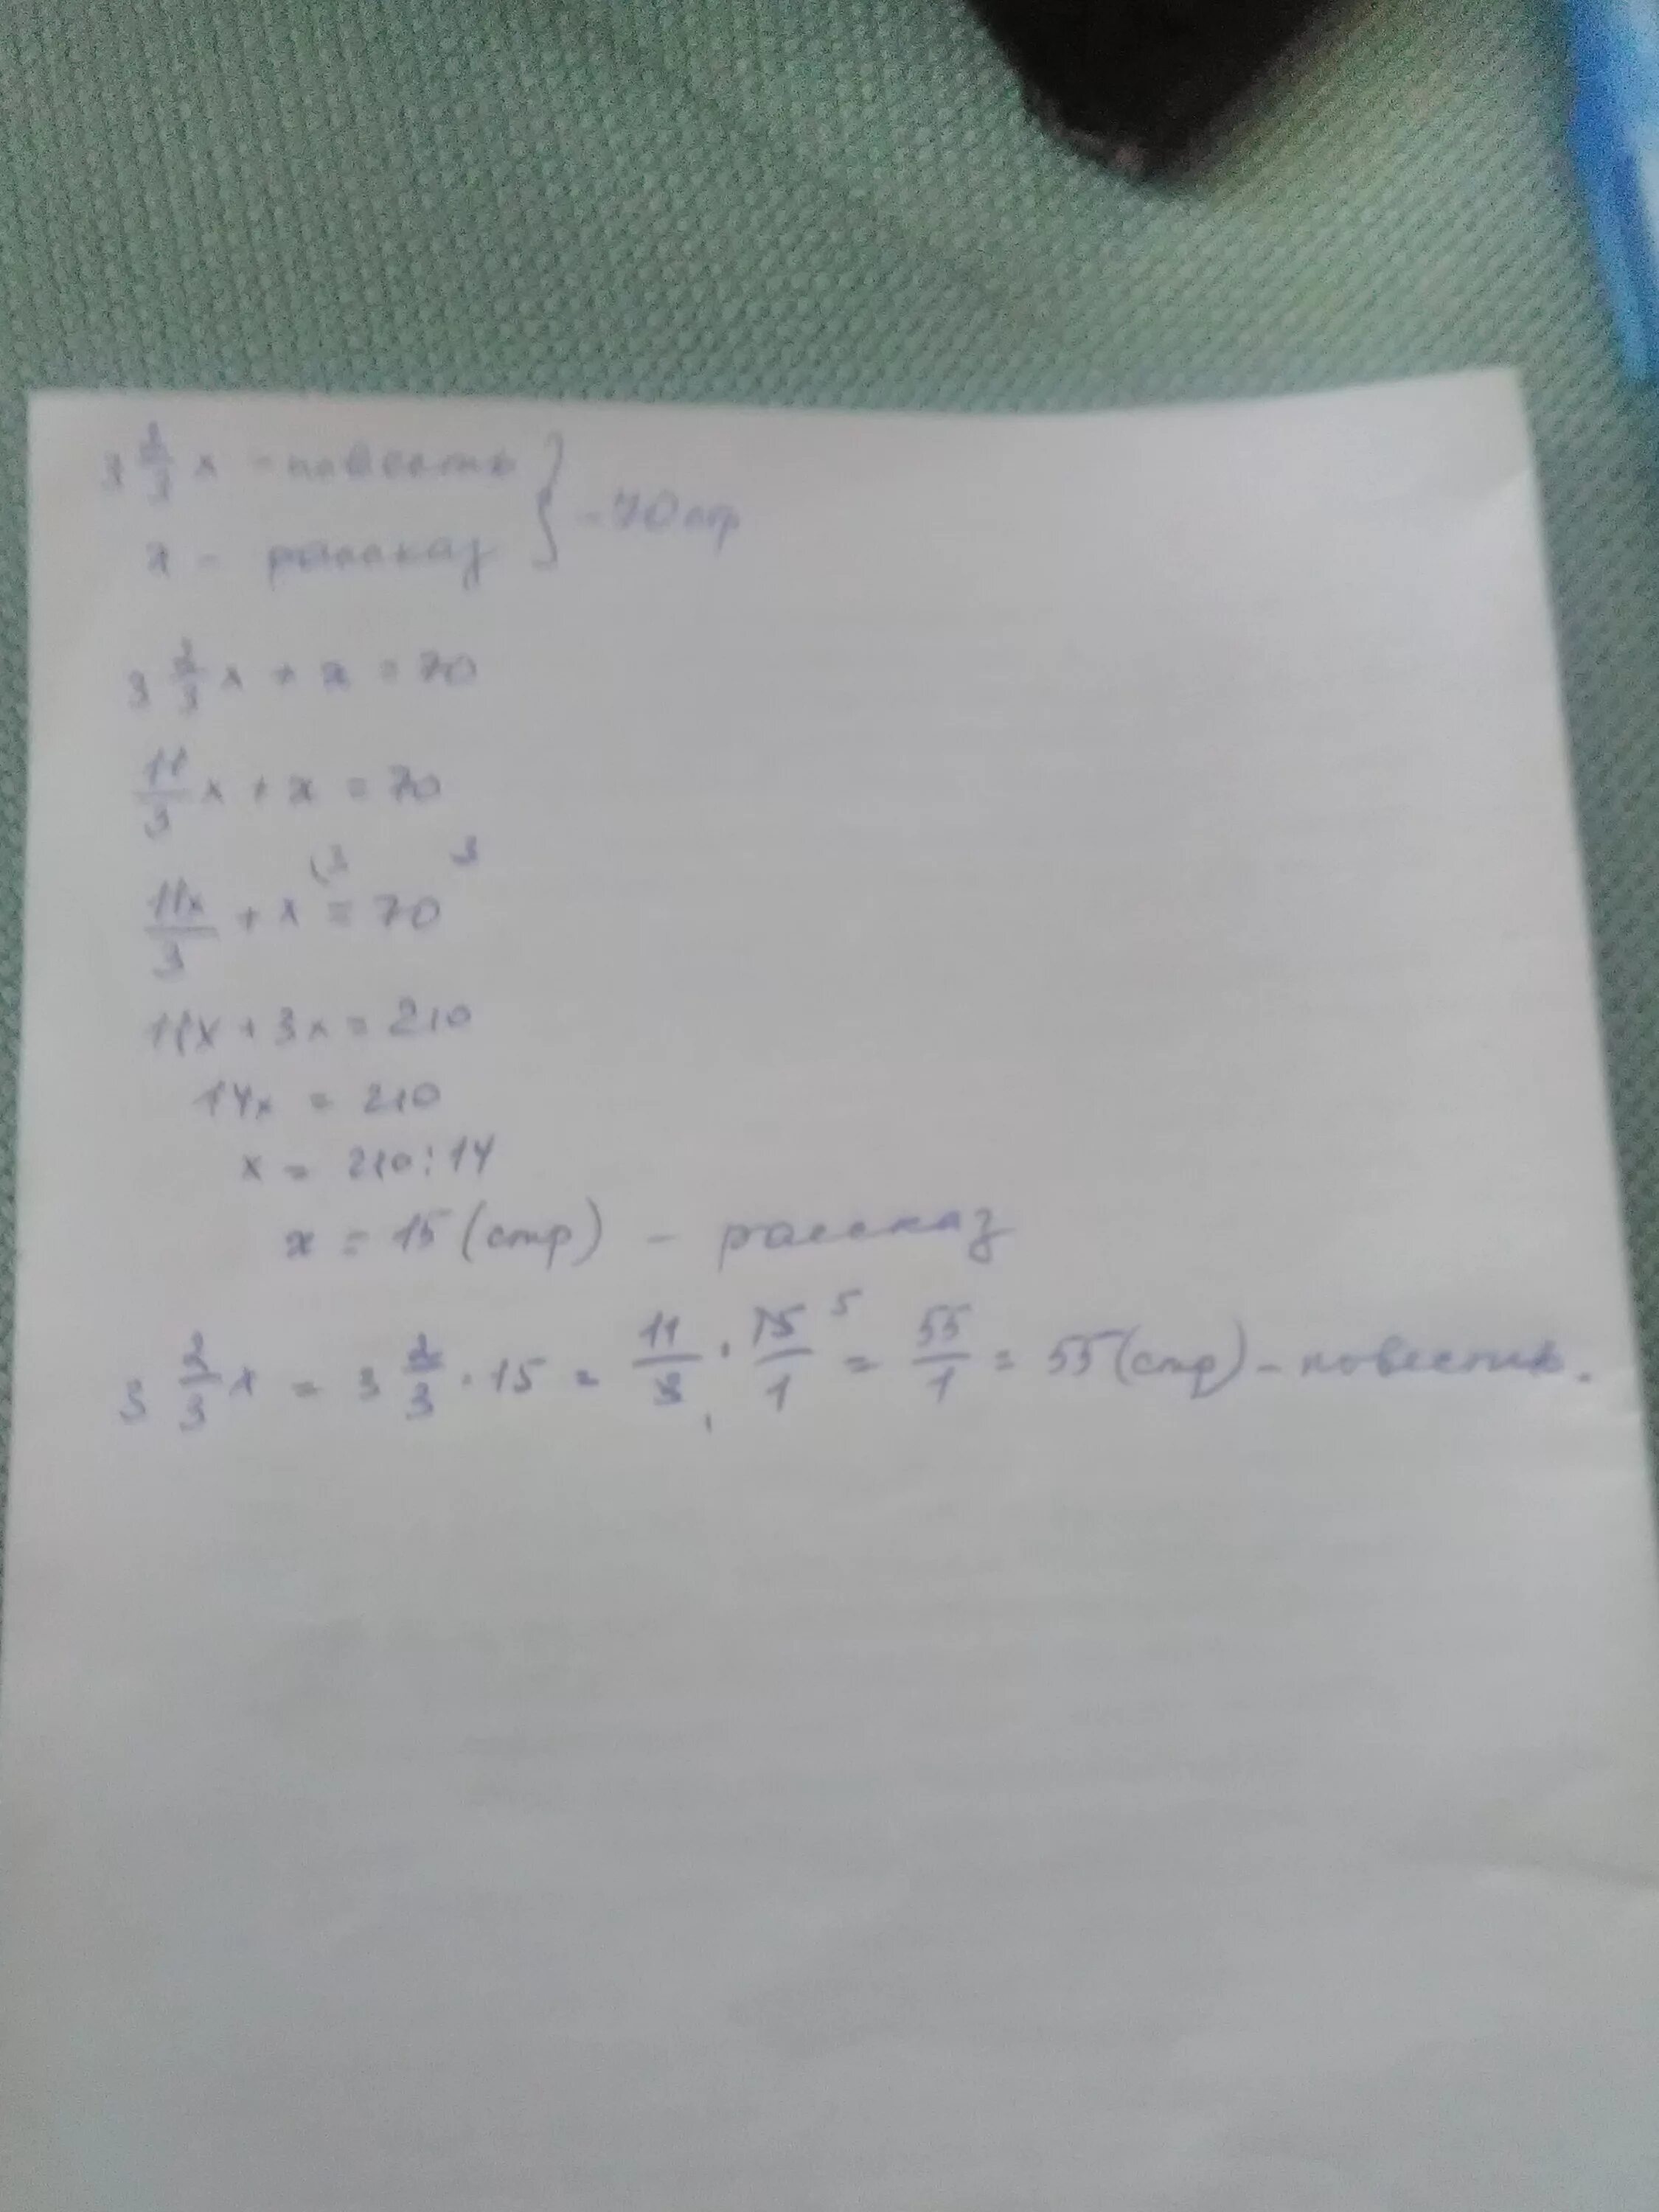 3 2/3 x - повесть } - 70 стр
x - рассказ
3 2/3 x + x = 70
11/3 x + x = 70
11x/3 + x (3 = 70 3
11x + 3x = 210
14x = 210
x = 210 : 14
x = 15 (стр) - рассказ
3 2/3 x = 3 2/3 · 15 = 11/3 1 · 15/1 5 = 55/1 = 55 (стр) - повесть.